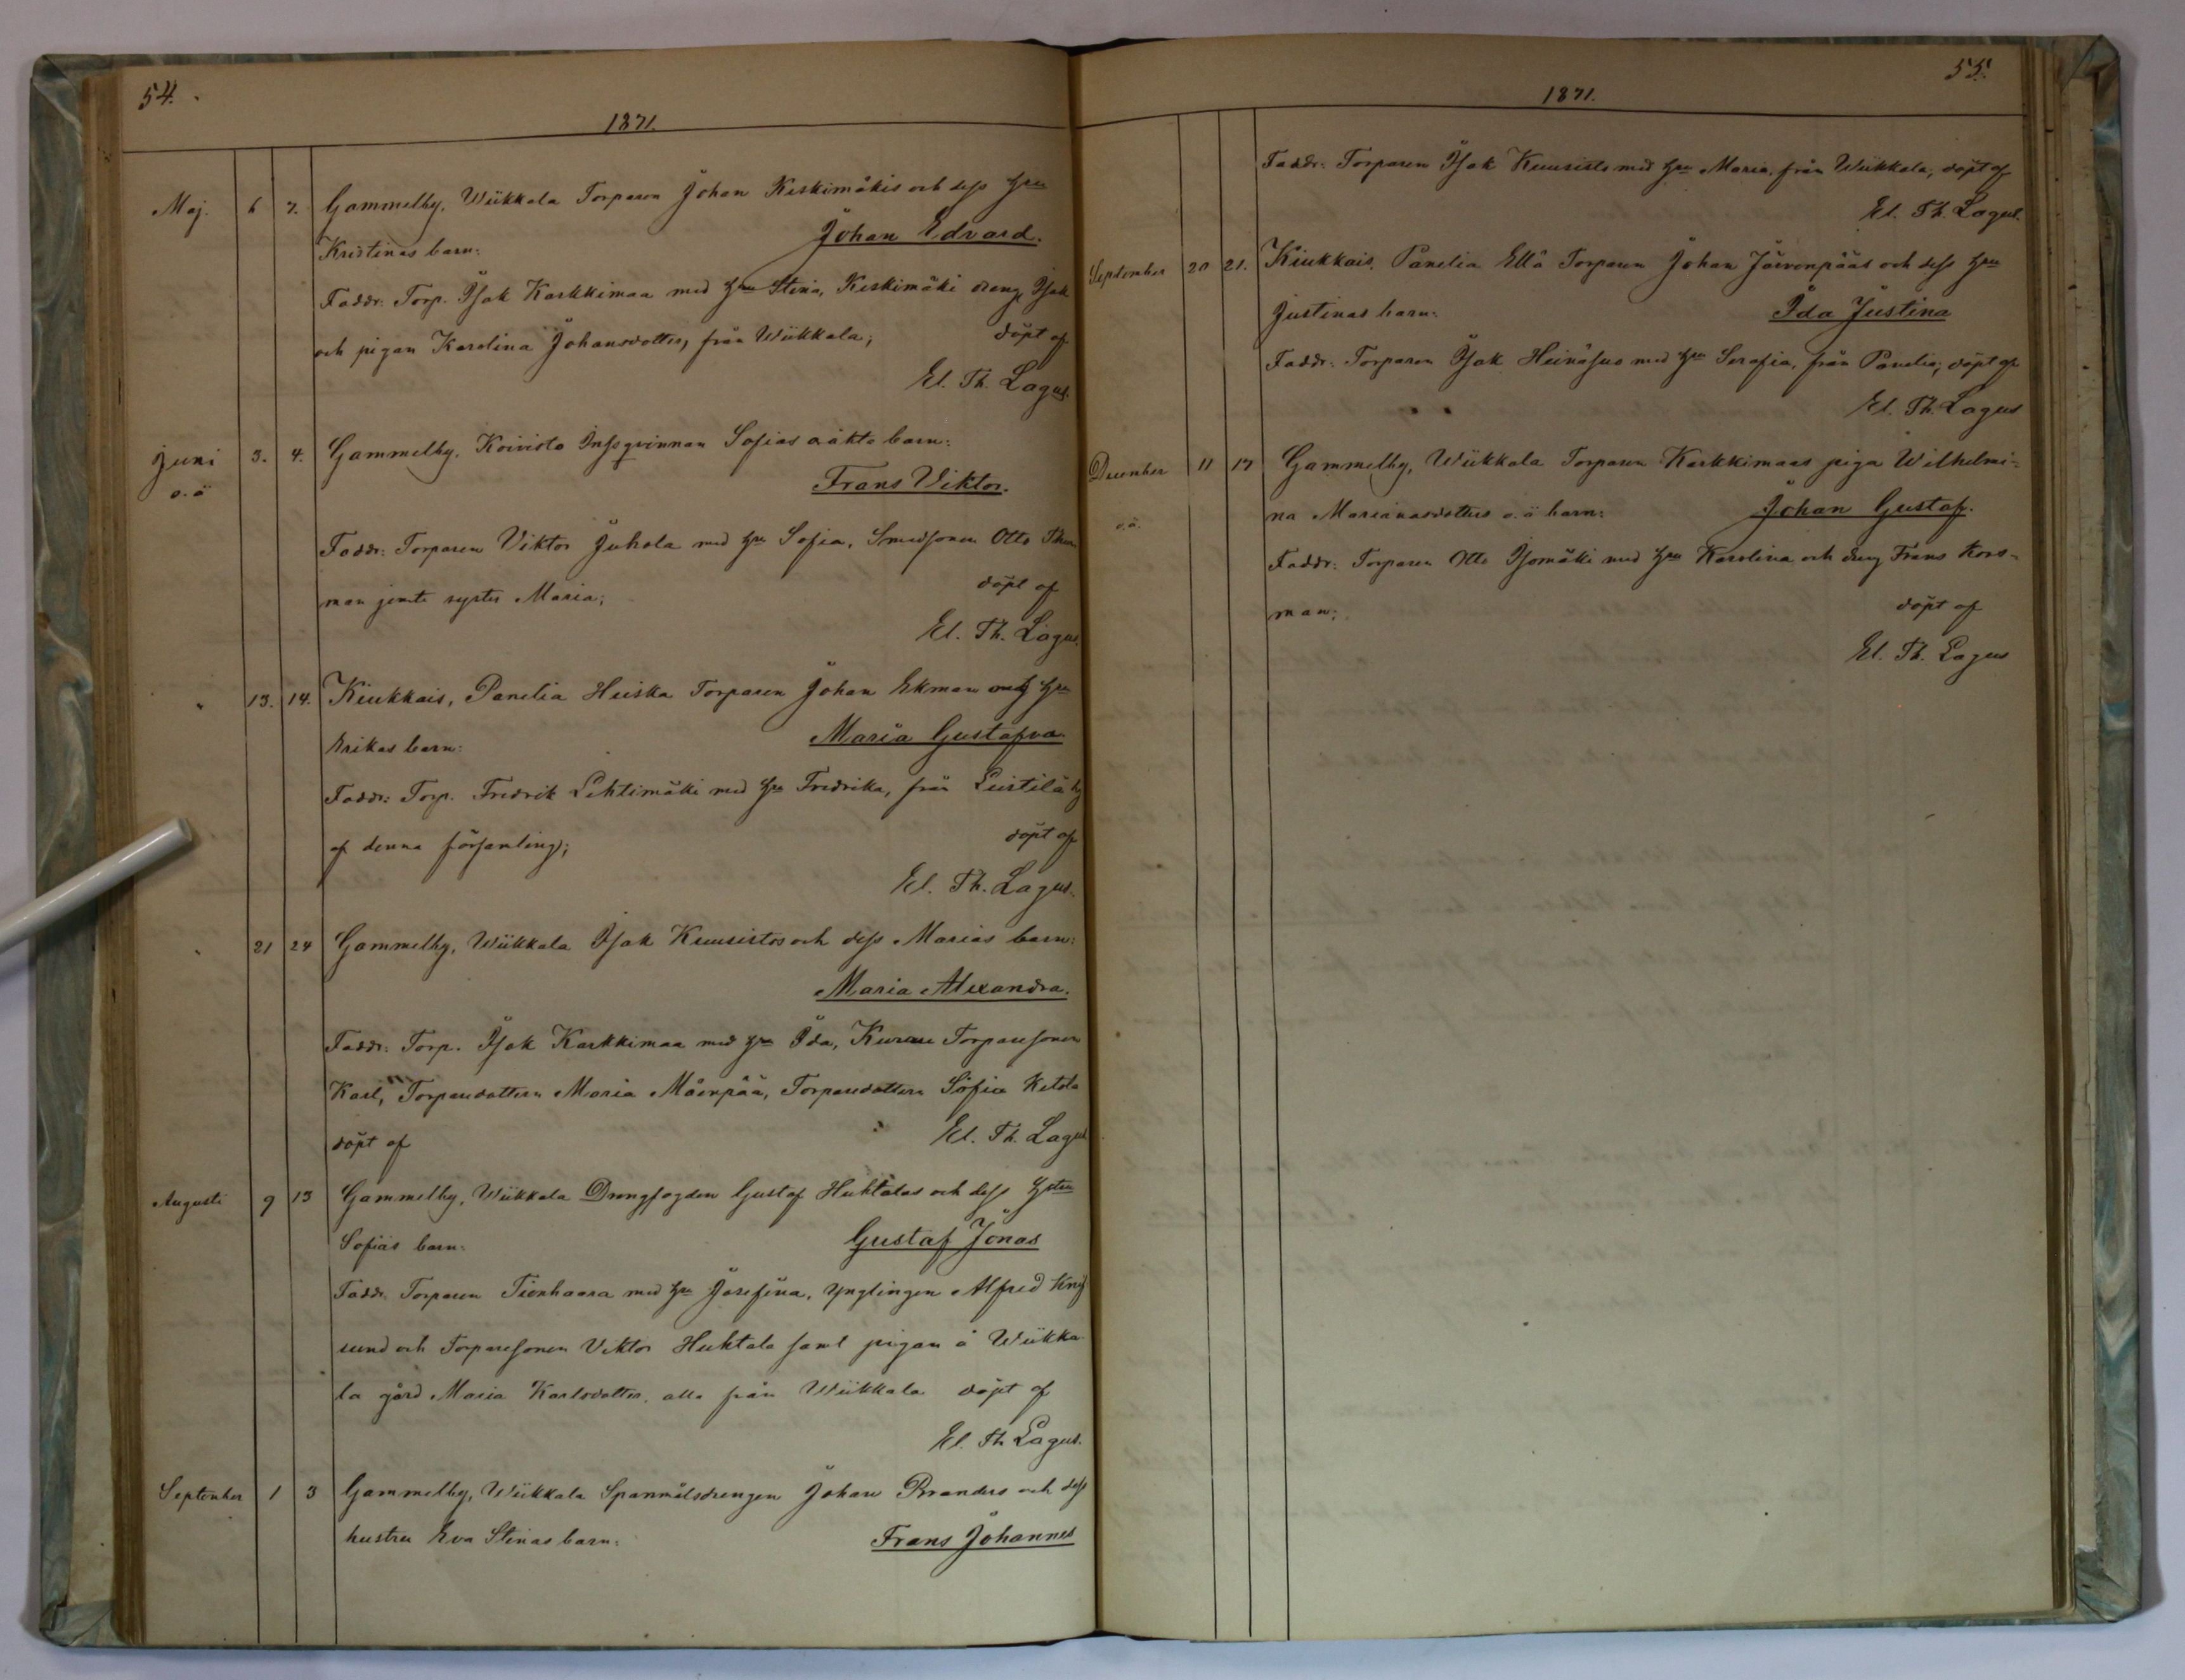 54.
1871.
Maj. 6 7. Gammelby, Wiikkala Torparen Johan Keskimäkis och dess Hru
Kristinas barn: Johan Edvard.
Faddr: Torp. Isak Karkkimaa med Hru Stina, Keskimäki dreng Isak
och pigan Karolina Johansdotter, från Wiikkala; döpt af
El. Th. Lagus.
Juni 3. 4. Gammelby, Koivisto Inhs qvinnan Sofias oäkta barn:
o.ä Frans Viktor.
Faddr: Torparen Viktor Juhola med Hru Sofia, Smedsonen Otto
man jemte syster Maria; döpt af
El. Th. Lagus.
" 13. 14. Kiukkais, Panelia Heiska Torparen Johan Ekman Hru
Erikas barn: Maria Gustafva.
Faddr: Torp. Fredrik Lehtimäki med Hru Fredrika, från Leistilä by
af denna församling; döpt af
El. Th. Lagus.
" 21 24 Gammelby, Wiikkala Isak Kuusistos och dess Marias barn:
Maria Alexandra.
Faddr: Torp. Isak Karkkimaa med Hru Ida, Torparesonen
Karl, Torparedottern Maria Mäenpää, Torparedottern Sofia Ketola
döpt af El. Th. Lagus
Augusti 9 13 Gammelby, Wiikkala Drengfogden Gustaf Huhtalas och dess Hstru
Sofias barn: Gustaf Jonas
Faddr. Torparen Tienhaara med Hru Josefina, Ynglingen Alfred
lund och Torparesonen Viktor Huhtala samt pigan å Wiikka
la gård Maria Karlsdotter, alla från Wiikkala döpt af
El. Th Lagus.
September 1 3 Gammelby, Wiikkala Spanmålsdrengen Johan Branders och dess
hustru Eva Stinas barn: Frans Johannes
55.
1871.
Faddr: Torparen Isak Kuusisto med Hru Maria, från Wiikkala, döpt af
El. Th. Lagus.
September 20 21. Kiukkais, Panelia Ellä Torparen Johan Järvenpääs och dess Hru
Justinas barn: Ida Justina
Faddr: Torparen Isak Heinäsuo med Hru Serafia, från Panelia; döpt af
El. Th. Lagus
December 11 17 Gammelby, Wiikkala Torparen Karkkimaas piga Wilhelmi-
o.ä. na Marianasdotters o.ä barn: Johan Gustaf.
Faddr: Torparen Otto Isomäki med Hru Karolina och dreng Frans Kors-
man; döpt af
El. Th. Lagus